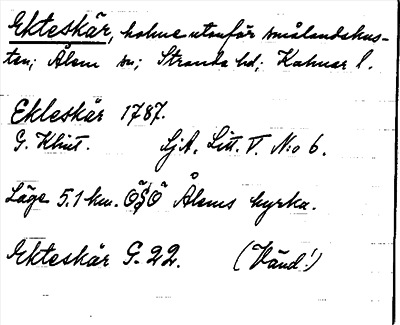 Ekteskär, holme utanför smålandskus-
ten; Ålem sn; Stranda hd; Kalmar l.
Ekleskär 1787.
G. Klint. SjA. Litt. V. N:o 6.
Läge 5.1 km. ÖSÖ Ålems kyrka.
Ekteskär G. 22. (Vänd!)